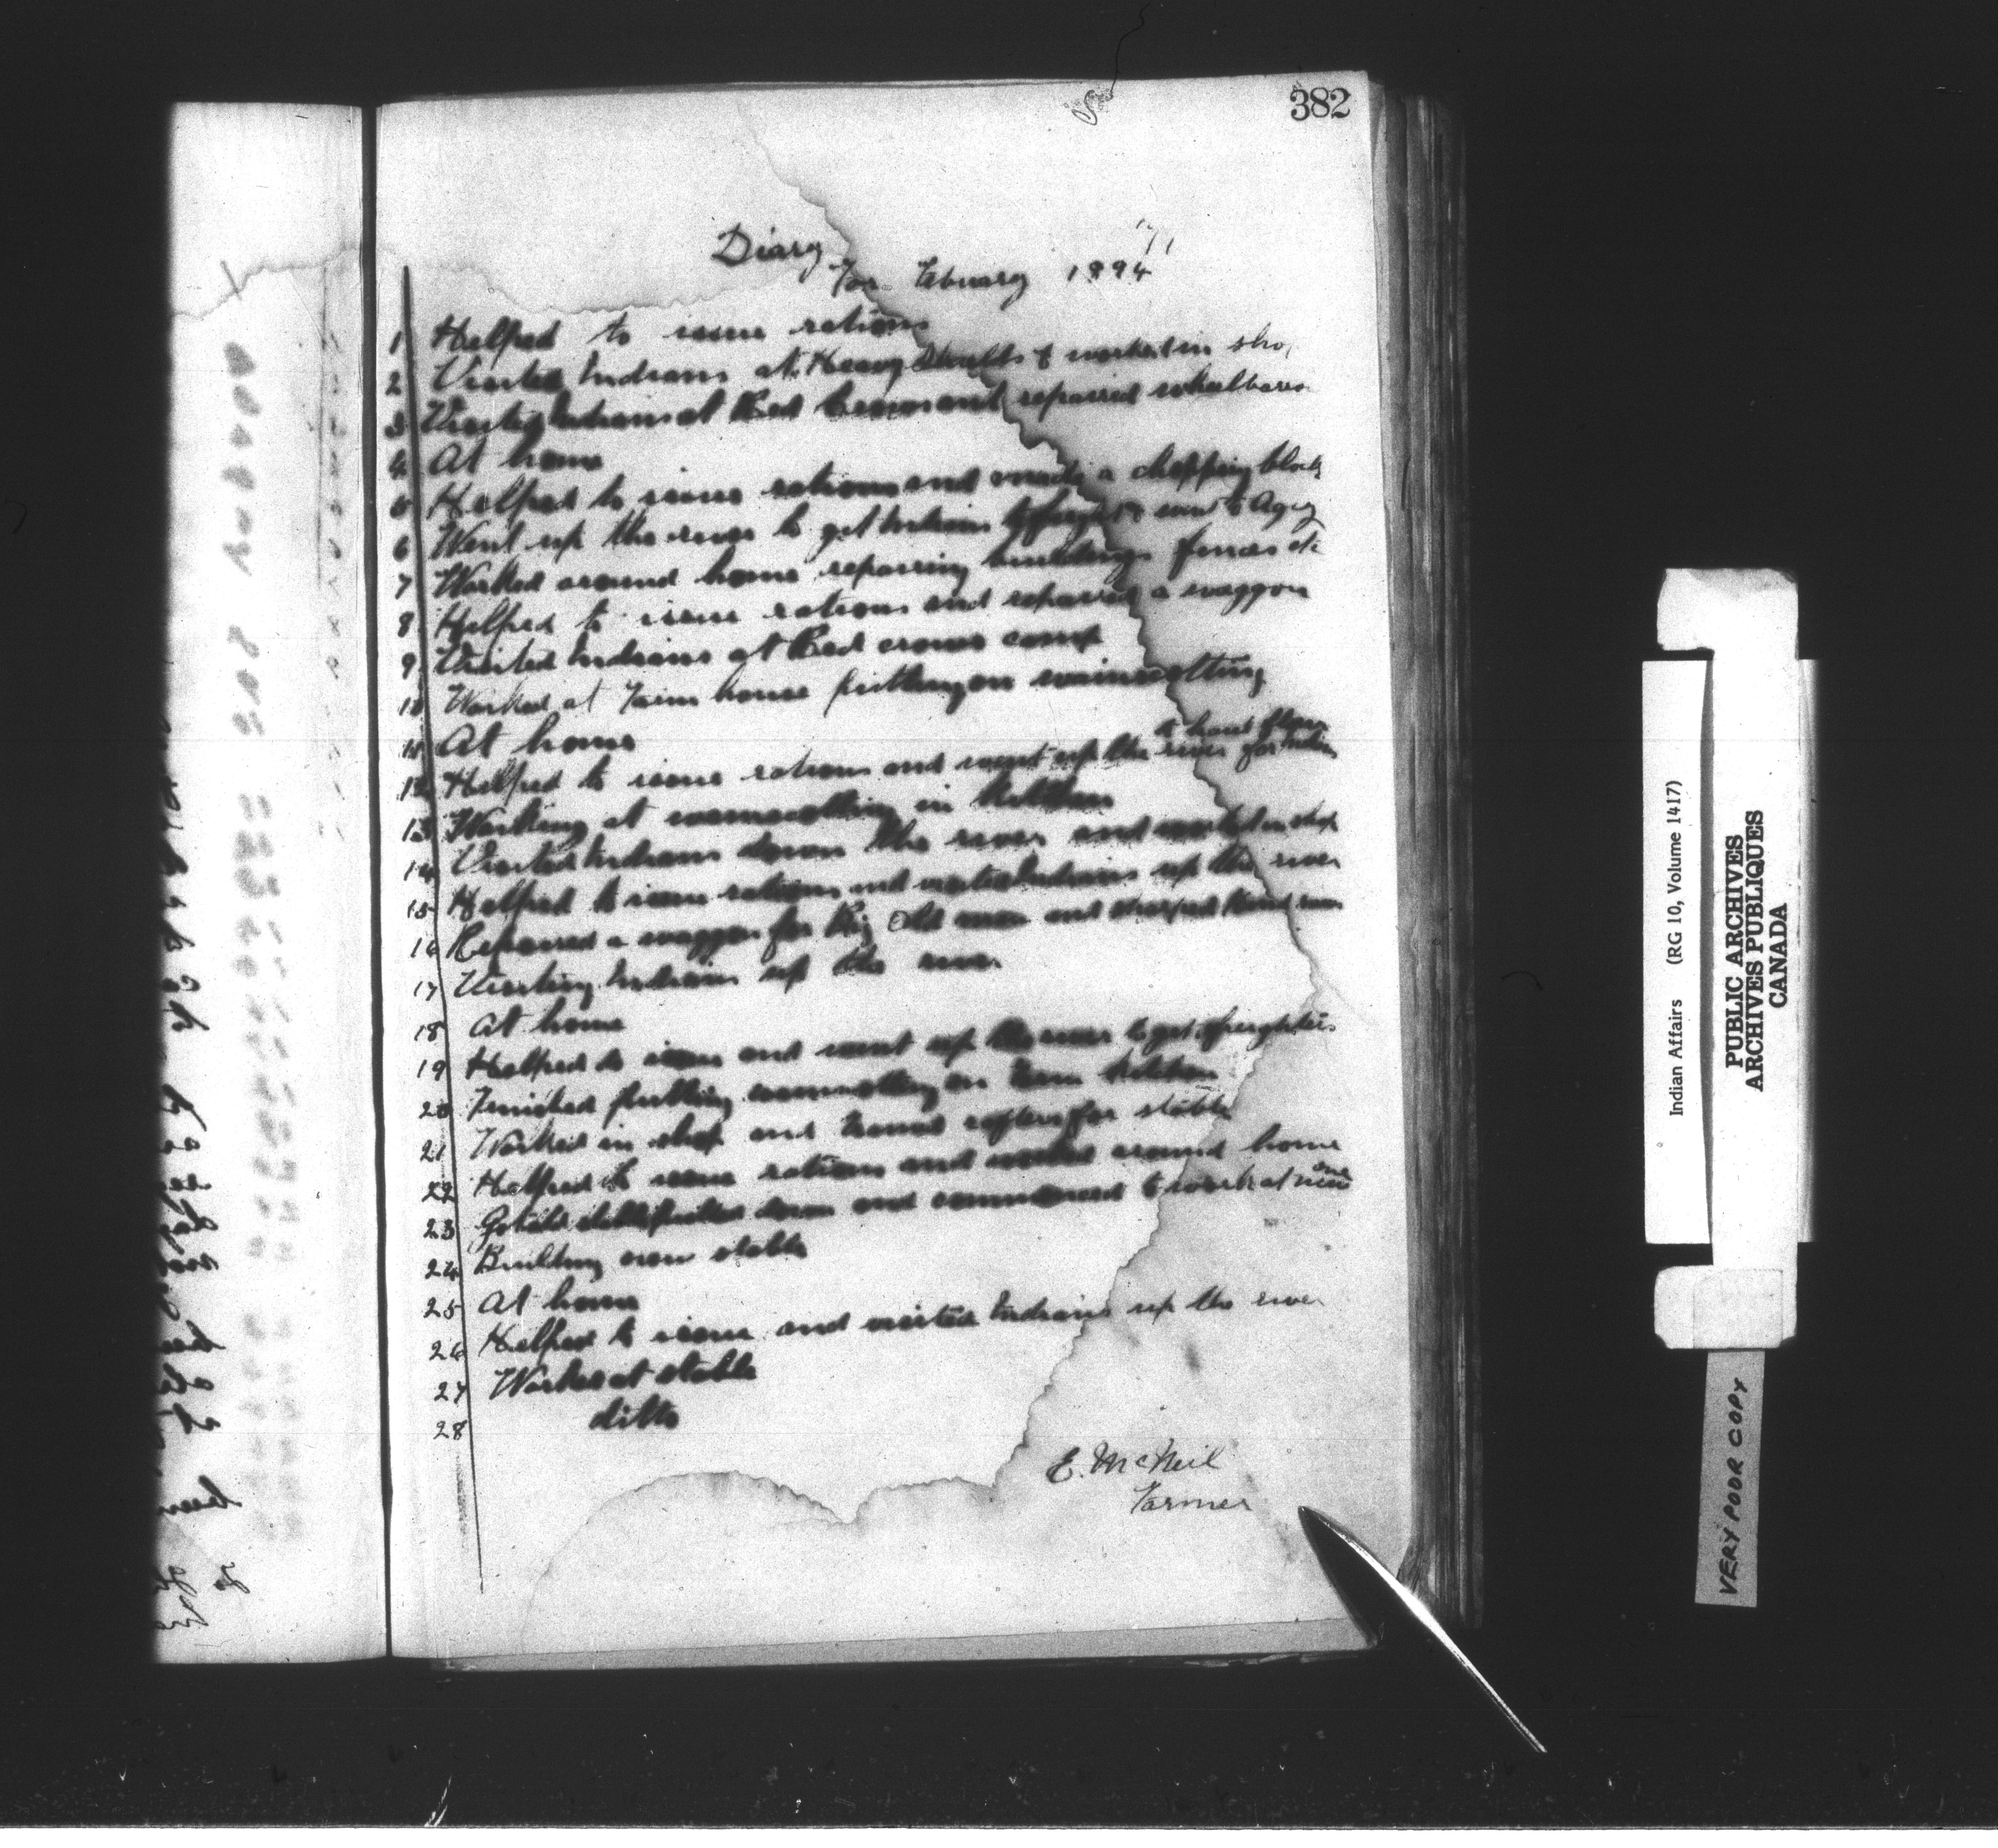 382
Diary
For Febuary 1894
1 Helped to issue rations
2 Visited Indians at Heavy Shields & worked in shop
3 Visited Indians at Red Crows and repaired wheelbarro
4 At home
5 Helped to issue rations and made a chopping block
6 Went up the river to get Indians to freight & went to Agcy
7 Worked around home repairing buildings fences etc
8 Helped to issue rations and repaired a waggon
9 Visited Indians at Red crows camp
10 Worked at Farm house putting on wainscotting
11 At home
to haul flour
12 Helped to issue rations and went up the river for Indians
13 Working at wainscotting in kitchen
14 Visited Indians down the river and worked in shop
15 Helped to issue rations and visited Indians up the river
16 Repaired a waggon for Big Old man and
17 Visiting Indians up the river
18 At home
19 Helped to issue and went up the river to get freighters
20 Finished putting wainscotting on Farm kitchen
21 Worked in shop and framed rafters for stable
22 Helped to issue rations and worked around home
23 Got old stable pulled down and commenced to work at new one
24 Building new stable
25 At home
26 Helped to issue and visited Indians up the river
27 Worked at stable
28 ditto
E. McNeil
Farmer
Indian Affairs (RG 10, Volume 1417)
PUBLIC ARCHIVES
ARCHIVES PUBLIQUES
CANADA
VERY POOR COPY